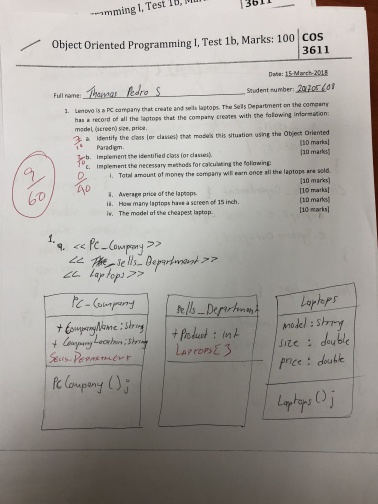 amming I, Test 1b,
3611
Object Oriented Programming I, Test 1b, Marks: 100
COS
3611
Date: 15-March-2018
Full name: Thomas Pedro S
Student number:
1. Lenovo is a PC company that create and sells laptops. The Sells Department on the company
has a record of all the laptops that the company creates with the following information:
model, (screen) size, price.
a. Identify the class (or classes) that models this situation using the Object Oriented
Paradigm. [10 marks]
b. Implement the identified class (or classes). [10 marks]
c. Implement the necessary methods for calculating the following:
i. Total amount of money the company will earn once all the laptops are sold.
[10 marks]
ii. Average price of the laptops. [10 marks]
iii. How many laptops have a screen of 15 inch. [10 marks]
iv. The model of the cheapest laptop. [10 marks]
9
60
0
40
1.
a. << PC_Company >>
<< Sells_Department >>
<< Laptops >>
PC-Company
+ CompanyName : String
+ CompanyLocation : String
SELLS DEPARTMENT
PCCompany ();
Sells_Department
+ Product : int
LAPTOPS[]
Laptops
model : String
size : double
price : double
Laptops ();